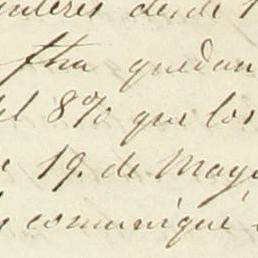 interes desde 1
fha quedan
el 8% que los
19. de Mayo
comunique